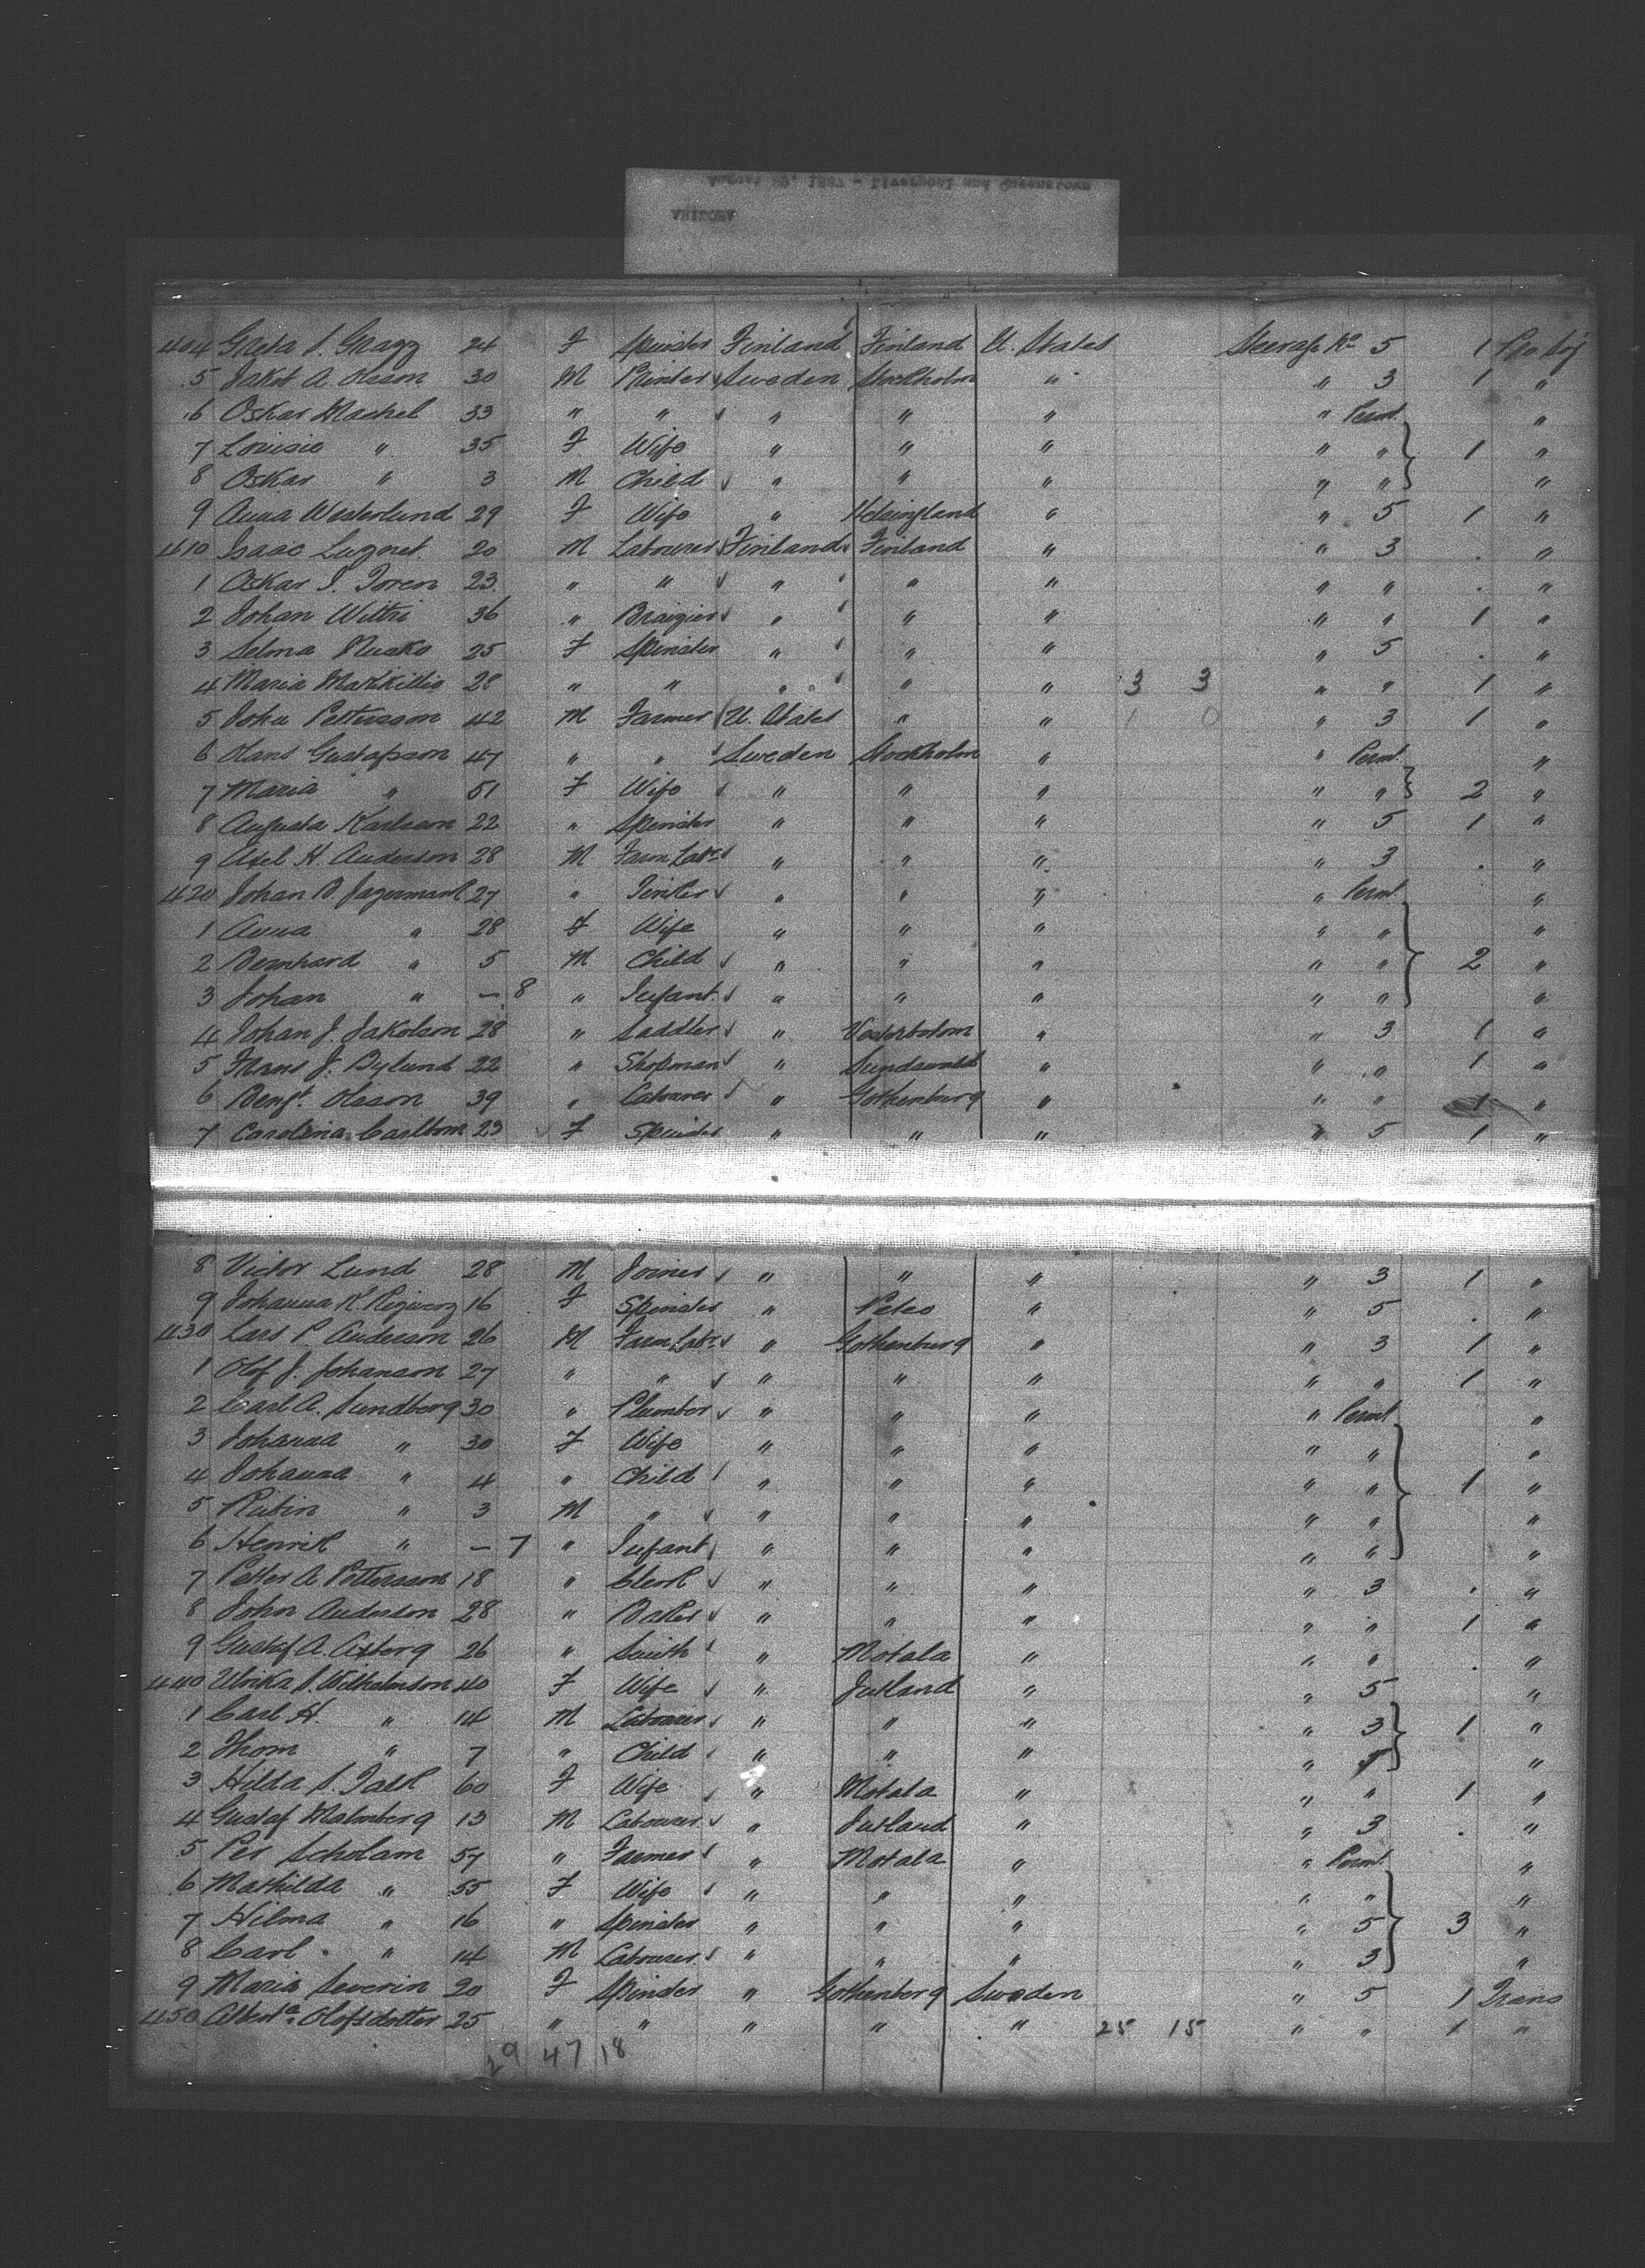 August 29, 1887 - Liverpool and Queenstown
UMBRIA
404 Greta S. 24 F Spinster Finland Finland U. States Steerage No 5 1 Pro Soj
5 Jakob A. Olsson 30 M Sweden Stockholm " " 3 1 "
6 Oskar Machel 33 " " " " " " Permt. "
7 Louisie " 35 F Wife " " " " " 1 "
8 Oskar " 3 M Child " " " " " "
9 Anna Westerlund 29 F Wife " Helsingland " " 5 1 "
410 Isaac 20 M Labourer Finland Finland " " 3 . "
1 Oskar I. Toren 23 " " " " " " " . "
2 Johan 36 " Braizier " " " " " 1 "
3 Selma 25 F Spinster " " " " 5 . "
4 Maria 28 " " " " " 3 3 " " 1 "
5 John Pettersson 42 M Farmer U. States " " 1 0 " 3 1 "
6 Hans Gustafsson 47 " " Sweden Stockholm " " Permt. "
7 Maria " 51 F Wife " " " " " 2 "
8 Augusta Karlsson 22 " Spinster " " " " 5 1 "
9 Axel H. Anderson 28 M Farm Labr. " " " " 3 . "
420 Johan B. 27 " " " " " Permt. "
1 Anna " 28 F Wife " " " " " "
2 Bernhard " 5 M Child " " " " " 2 "
3 Johan " - 8 " Infant " " " " " "
4 Johan J. Jakobson 28 " Saddler " Vesterbotom " " 3 1 "
5 Frans J. Bylund 22 " Shopman " Sundswald " " " 1 "
6 Bengt. Olsson 39 " Labourer " Gothenburg " " " 1 "
7 Carolina Carlbom 23 F Spinster " " " " 5 1 "
8 Victor Lund 28 M Joiner " " " " 3 1 "
9 Johanna K. 16 F Spinster " Peteo " " 5 . "
430 Lars P. Anderson 26 M Farm Labr. " Gothenburg " " 3 1 "
1 Olof J. Johanson 27 " " " " " " " 1 "
2 Carl A. Sundberg 30 " Plumber " " " " Permt. "
3 Johanna " 30 F Wife " " " " " "
4 Johanna " 4 " Child " " " " " 1 "
5 Rubin " 3 M " " " " " " "
6 Henrik " - 7 " Infant " " " " " "
7 Petter A. Petterson 18 " Clerk " " " " 3 . "
8 John Anderson 28 " Baker " " " " " 1 "
9 Gustaf A. 26 " Smith " Motala " " " . "
440 Ulrika S. Wilhelmson 40 F Wife " Jutland " " 5 "
1 Carl H. " 14 M Labourer " " " " 3 1 "
2 Thom " 7 " Child " " " " "
3 Hilda S. Falk 60 F Wife " Motala " " " 1 "
4 Gustaf Malmberg 13 M Labourer " Jutland " " 3 . "
5 Per Scholam 57 " Farmer " Motala " " Permt. "
6 Mathilda " 55 F Wife " " " " " "
7 Hilma " 16 " Spinster " " " " 5 3 "
8 Carl " 14 M Labourer " " " " 3 "
9 Maria Severin 20 F Spinster " Gothenborg Sweden " 5 1 Trans
450 Albert'a Olofsdotter 25 " " " " " 25 15 " " 1 "
29 47 18